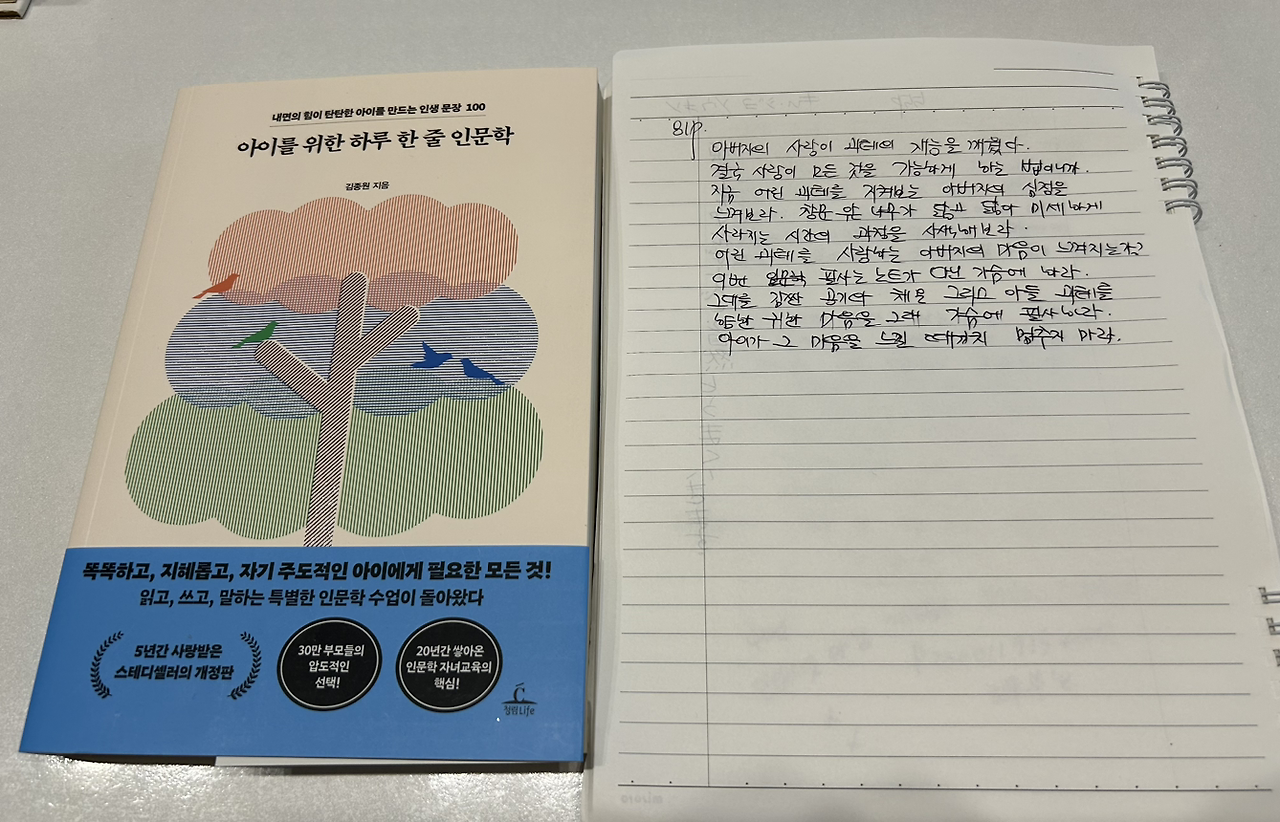 내면의 힘이 탄탄한 아이를 만드는 인생 문장 100
아이를 위한 하루 한 줄 인문학
김종원 지음
똑똑하고, 지혜롭고, 자기 주도적인 아이에게 필요한 모든 것!
읽고, 쓰고, 말하는 특별한 인문학 수업이 돌아왔다
5년간 사랑받은
스테디셀러의 개정판
30만 부모들의
압도적인
선택!
20년간 쌓아온
인문학 자녀교육의
핵심!
청림Life
81p.
아버지의 사랑이 괴테의 재능을 깨웠다.
결국 사랑이 모든 것을 가능하게 하는 법이니까.
지금 어린 괴테를 지켜보는 아버지의 심정을
느껴보라. 창문 앞 나무가 닳고 닳아 미세하게
사라지는 시간의 과정을 사색해보라.
어린 괴테를 사랑하는 아버지의 마음이 느껴지는가?
이번 필사는 노트가 아닌 가슴에 하라.
그대를 잠깐 끄고 그리고 아들 괴테를
향한 귀한 마음을 그대 가슴에 필사하라.
아이가 그 마음을 느낄 때까지 멈추지 마라.